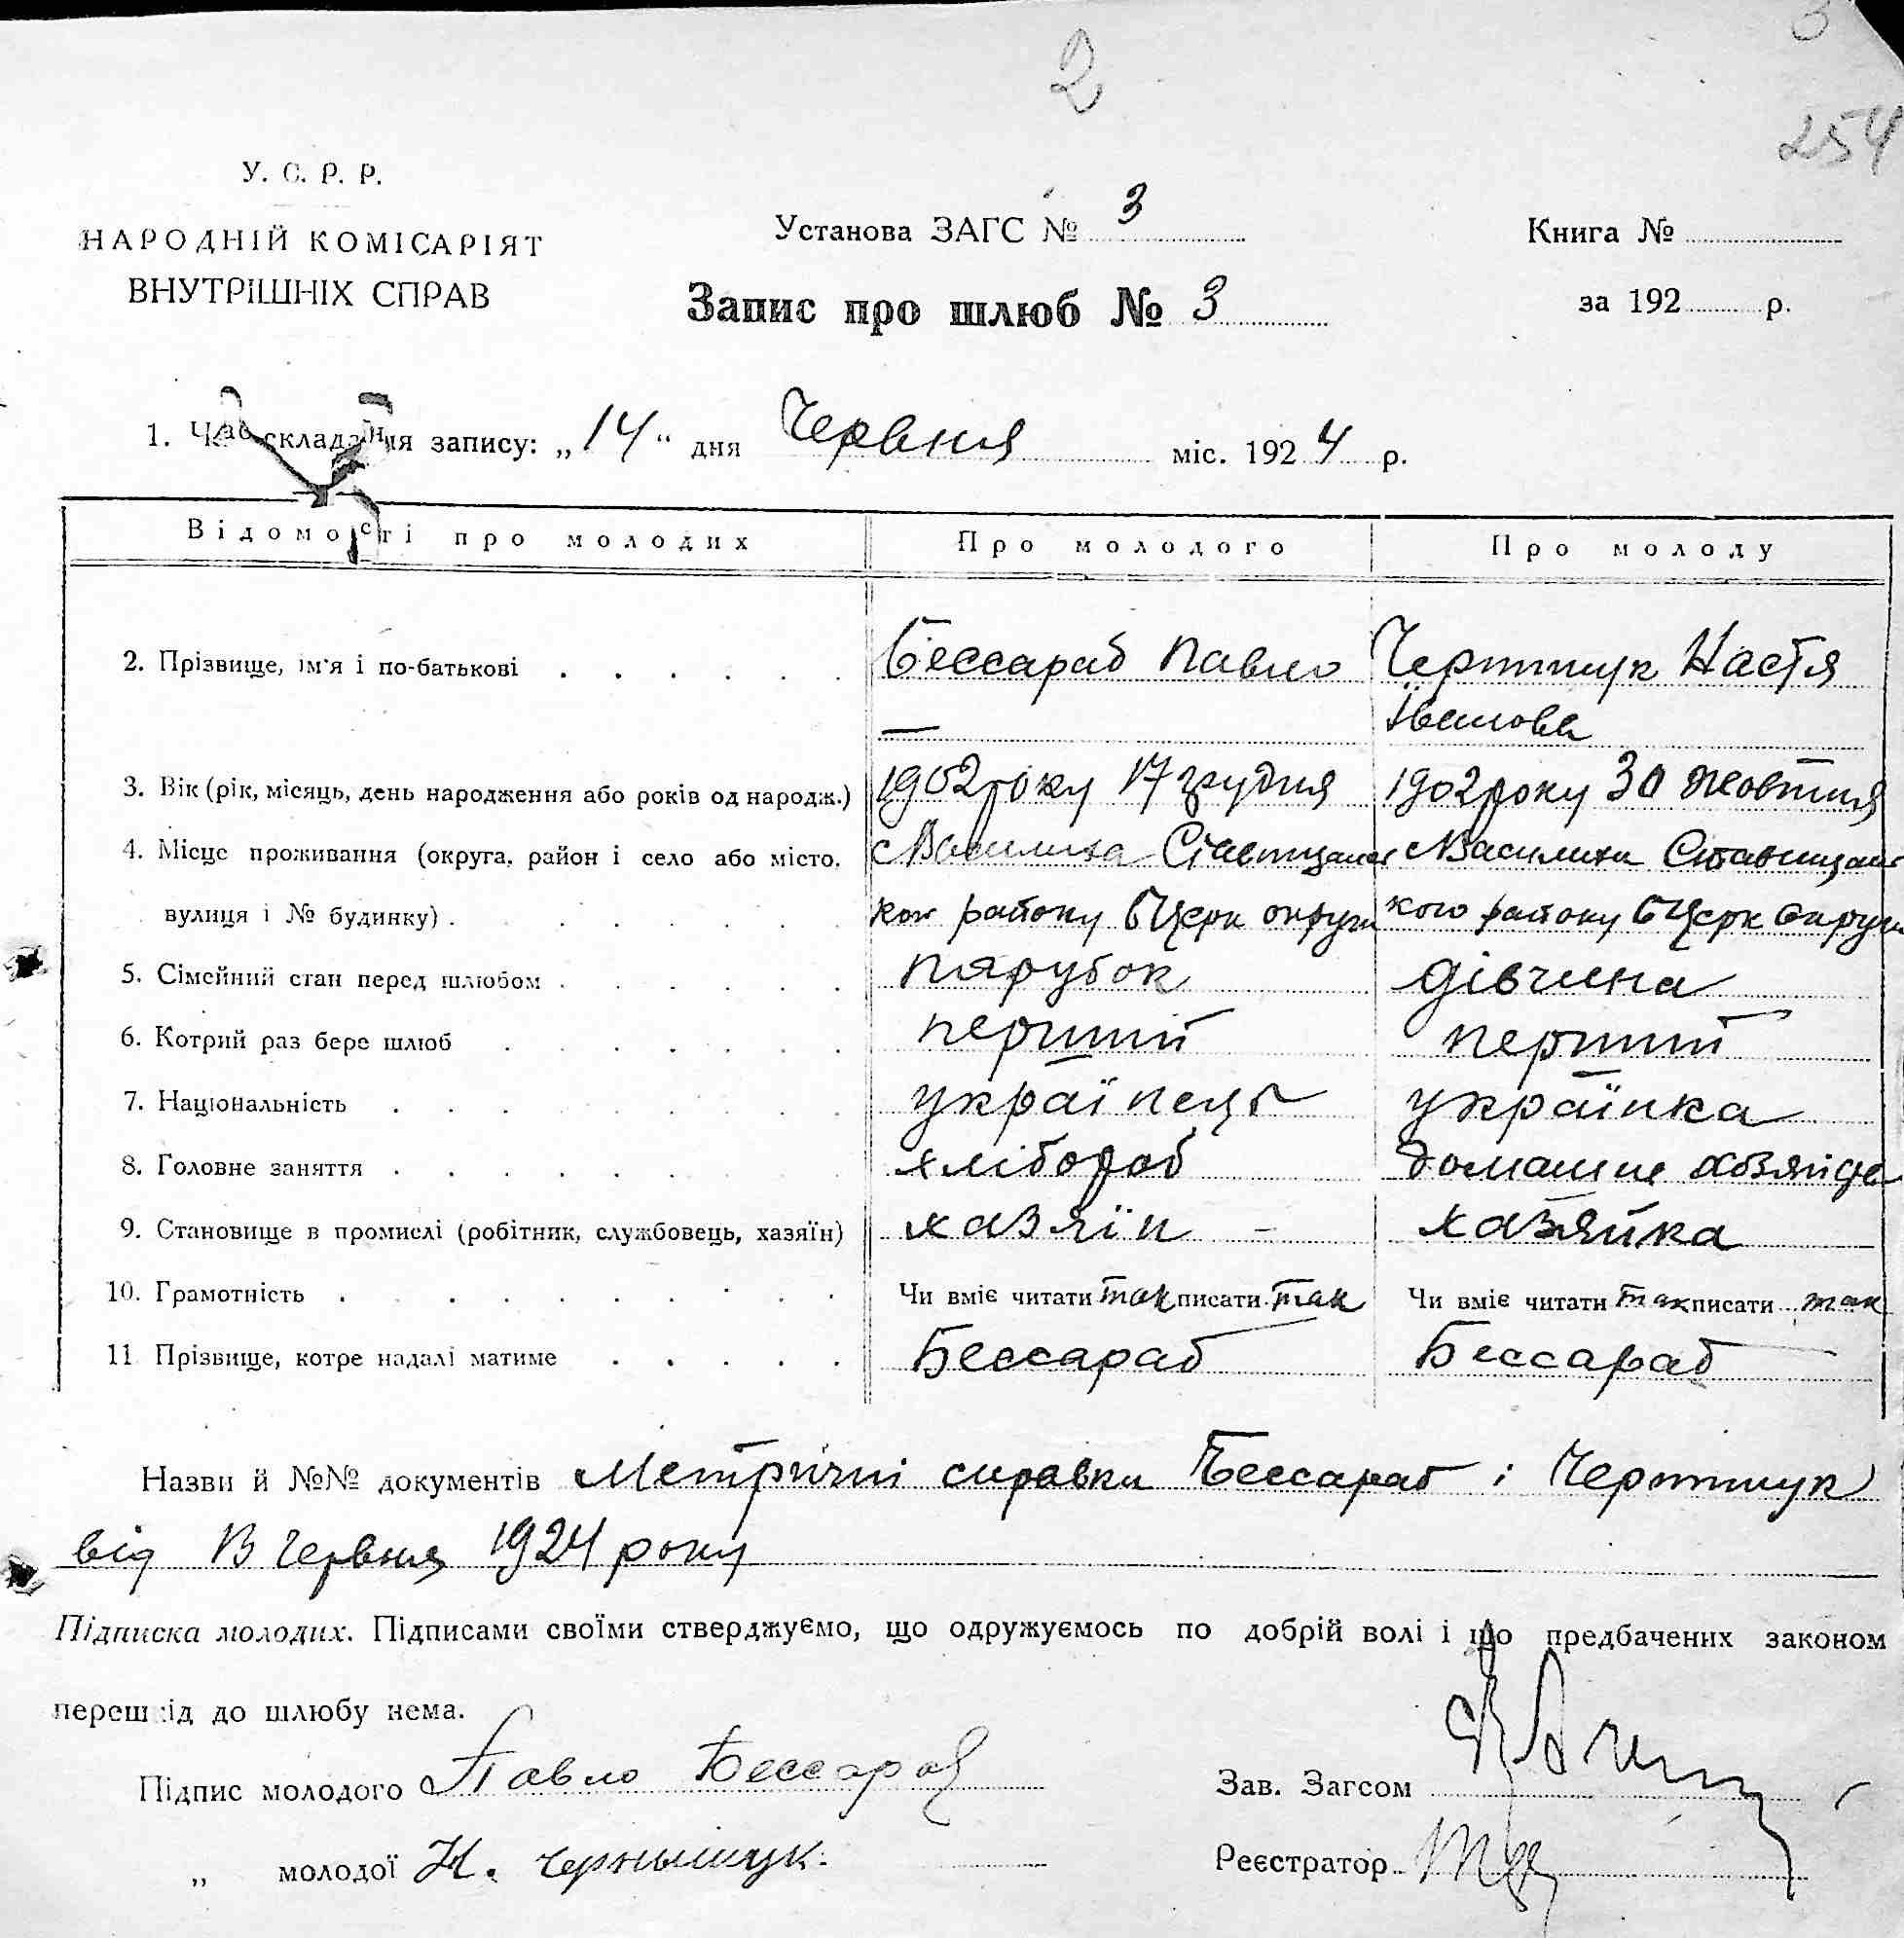 2
254
У. С. Р. Р.
НАРОДНІЙ КОМІСАРІЯТ
ВНУТРІШНІХ СПРАВ
Установа ЗАГС № 3
Запис про шлюб № 3
Книга №
за 192 р.
1. Час складання запису: „14“ дня Червня міс. 1924 р.
Відомості про молодих Про молодого Про молоду
2. Прізвище, ім'я і по-батькові Бессараб Павло Черттщук Настя
— Іванова
3. Вік (рік, місяць, день народження або років од народж.) 1902 року 17 грудня 1902 року 30 жовтня
4. Місце проживання (округа, район і село або місто, с Василиха Ставищанс с Василихи Ставищанс
вулиця і № будинку) кого району БЦерк округи кого району БЦерк округи
5. Сімейний стан перед шлюбом парубок дівчина
6. Котрий раз бере шлюб перший перший
7. Національність українець українка
8. Головне заняття хлібороб домашнє
9. Становище в промислі (робітник, службовець, хазяїн) хазяїн - хазяйка
10. Грамотність Чи вміє читати так писати так Чи вміє читати так писати так
11 Прізвище, котре надалі матиме Бессараб Бессараб
Назви й №№ документів Метричні справки Бессараб і
від 13 червня 1924 року
Підписка молодих. Підписами своїми стверджуємо, що одружуємось по добрій волі і що предбачених законом
перешкід до шлюбу нема.
Підпис молодого Павло Бессараб
Зав. Загсом
„ молодої Н. Чернышук.
Реєстратор